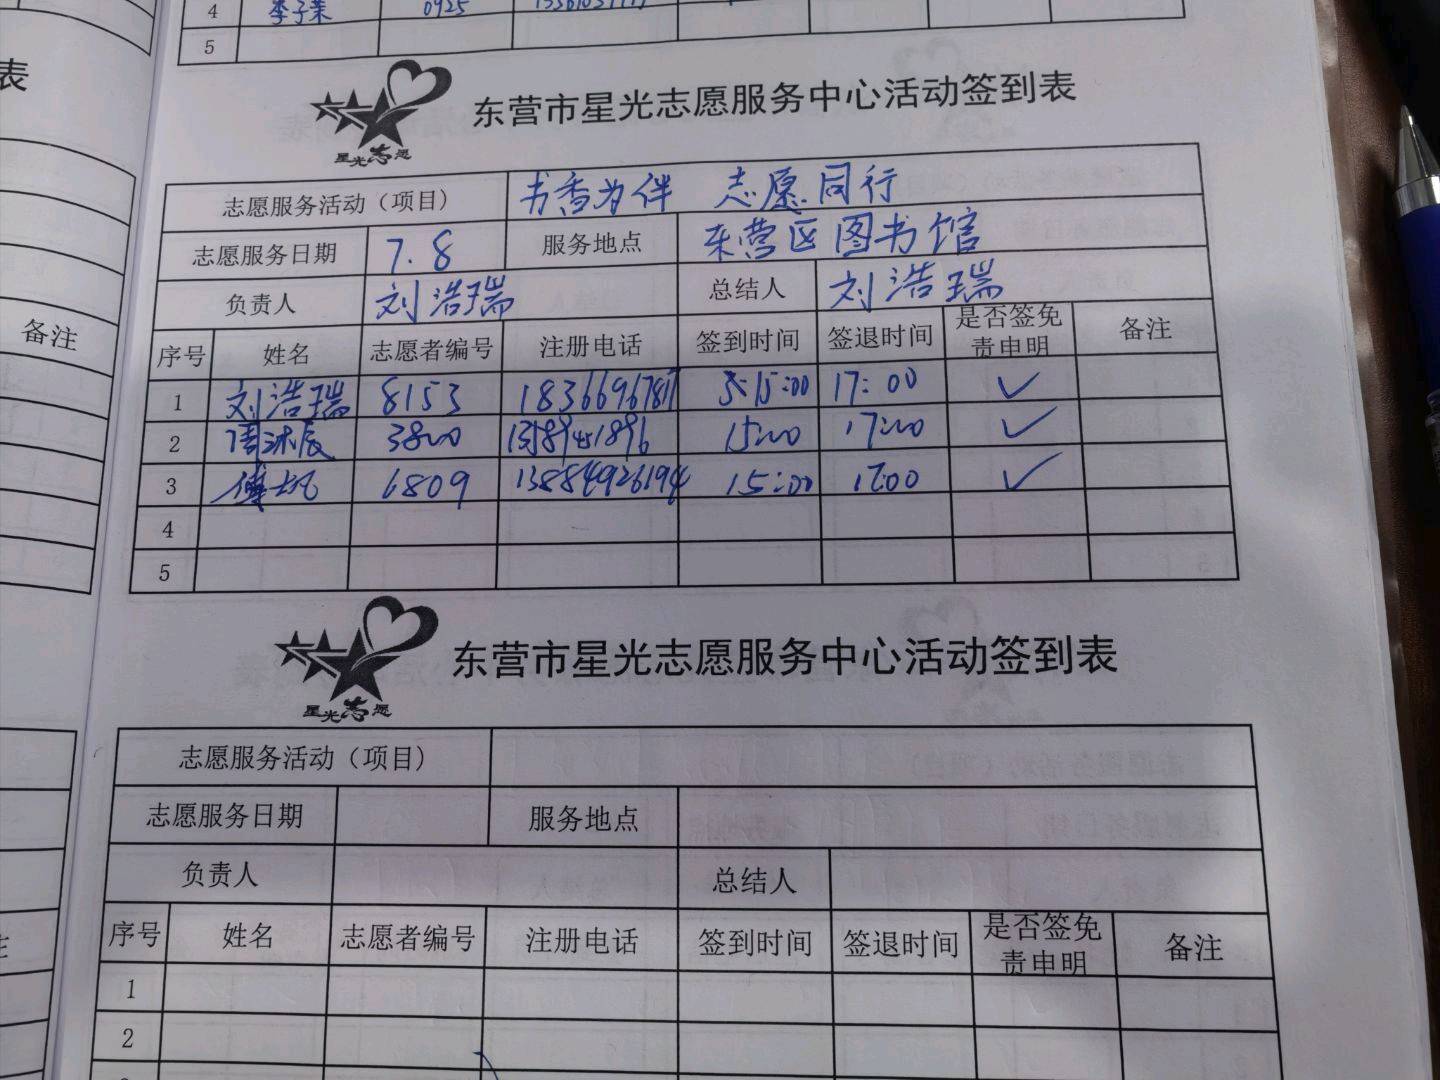 4 李子荣 0925
5
表
备注
东营市星光志愿服务中心活动签到表
星光志愿
志愿服务活动（项目） 书香为伴 志愿同行
志愿服务日期 7.8 服务地点 东营区图书馆
负责人 刘浩瑞 总结人 刘浩瑞
序号 姓名 志愿者编号 注册电话 签到时间 签退时间 是否签免责申明 备注
1 刘浩瑞 8153 15:00 17:00 ✓
2 3800 15:00 17:00 ✓
3 6809 13884926194 15:00 17:00 ✓
4
5
东营市星光志愿服务中心活动签到表
星光志愿
志愿服务活动（项目）
志愿服务日期 服务地点
负责人 总结人
序号 姓名 志愿者编号 注册电话 签到时间 签退时间 是否签免责申明 备注
1
2